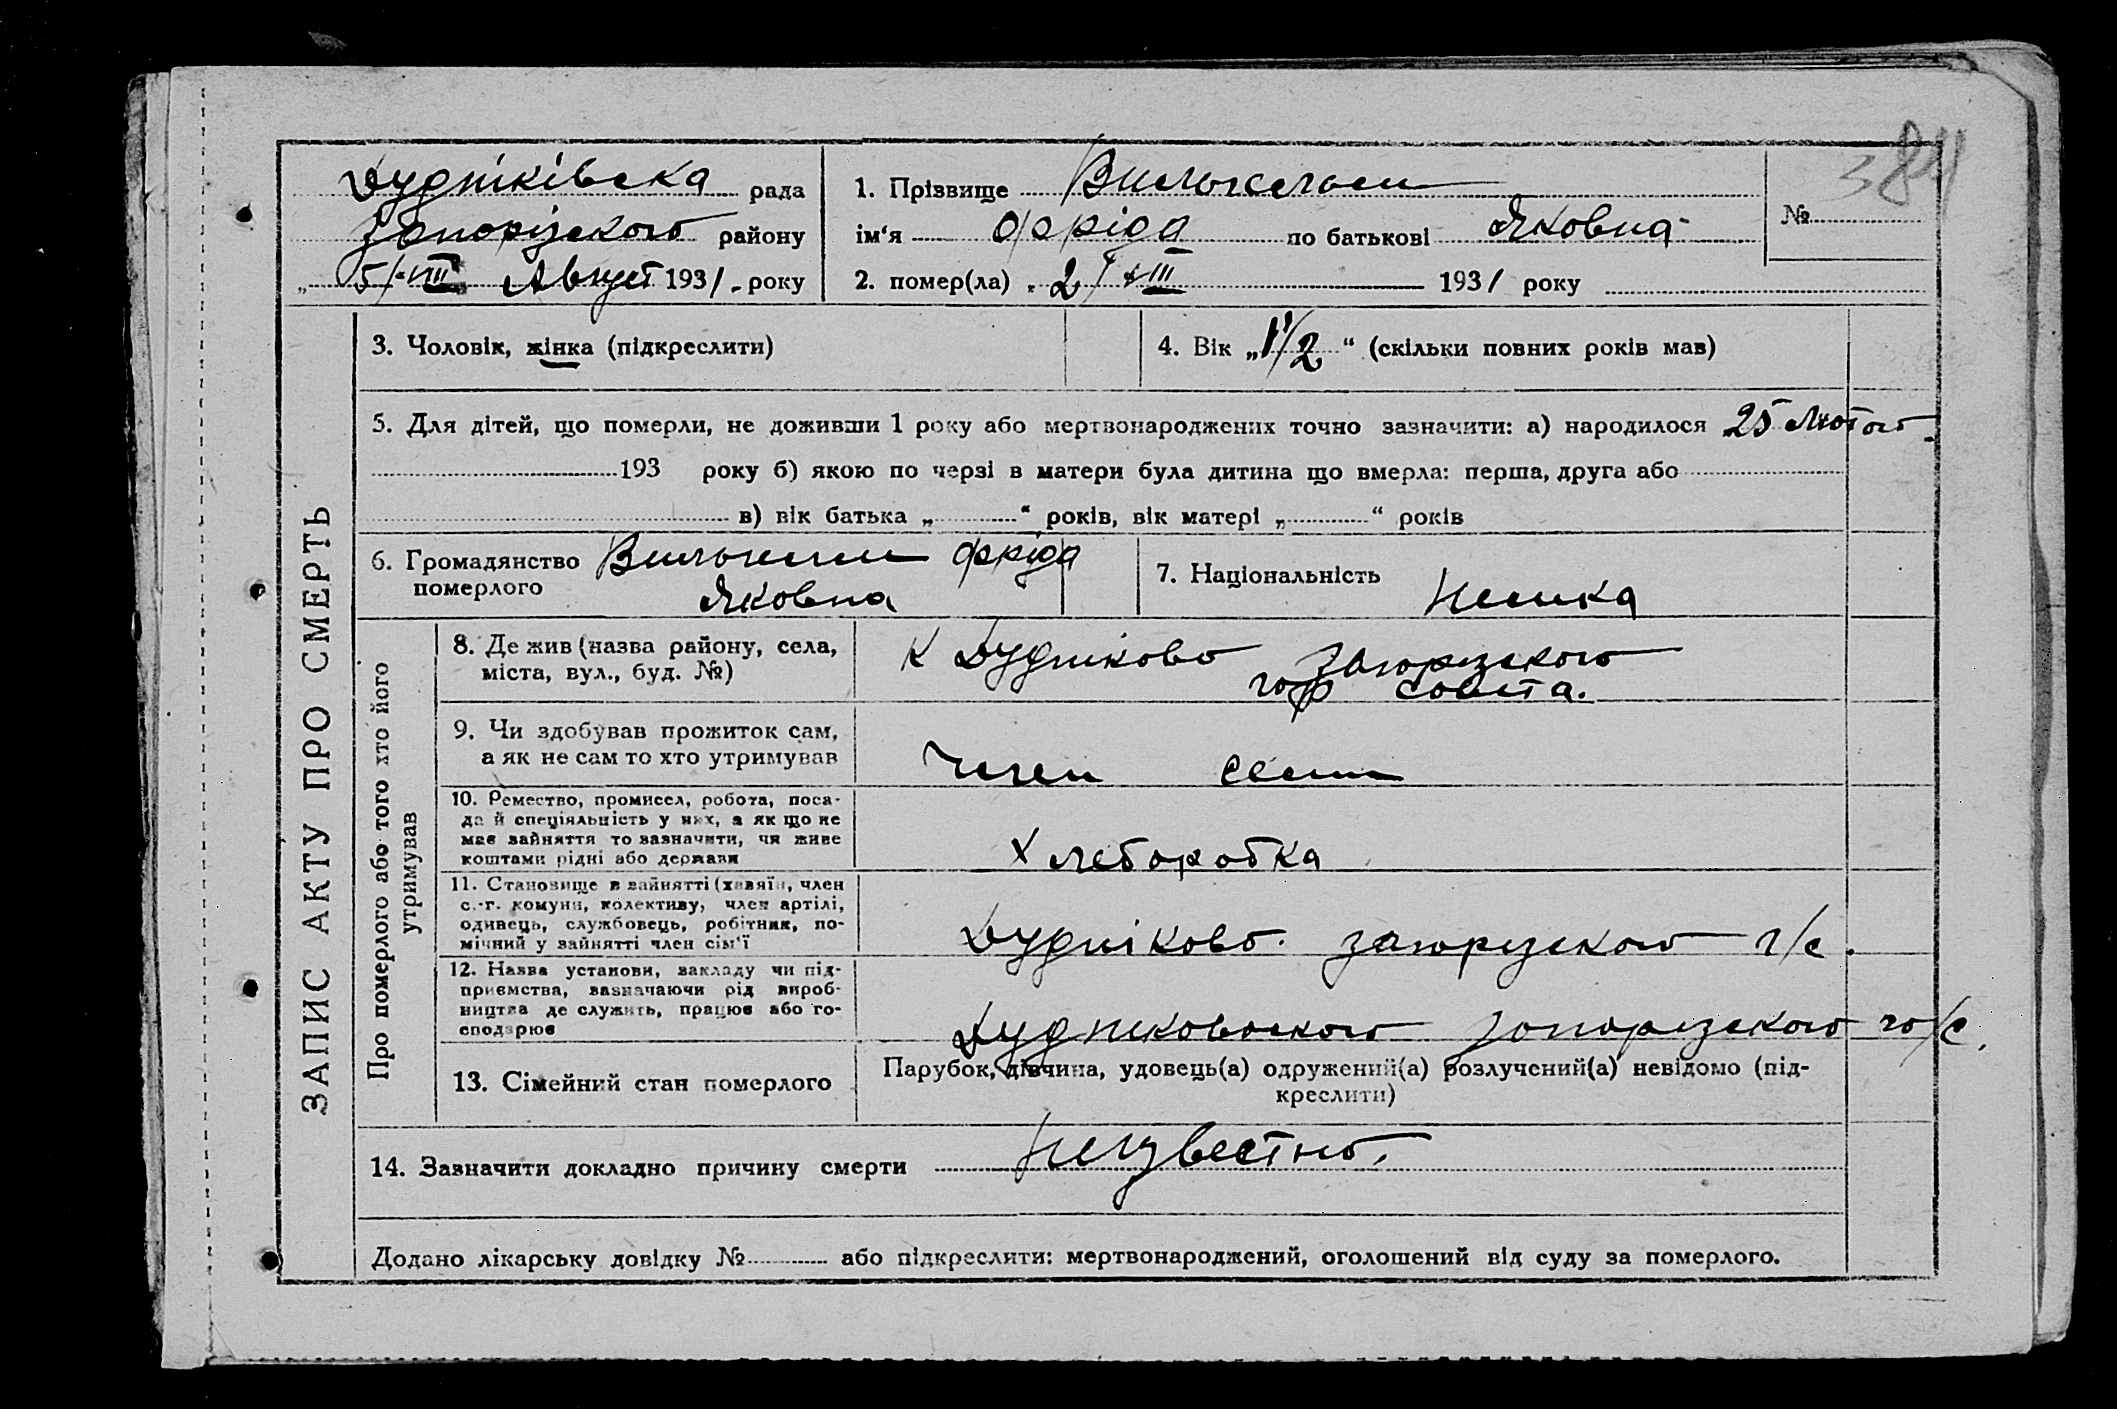 384
Дудніківска рада
Запорізького району
„ 5/VIII „ Август 1931. року
1. Прізвище
ім'я Фріда по батькові Яковна
№
2. помер(ла) „ 2/VIII 1931 року
ЗАПИС АКТУ ПРО СМЕРТЬ
3. Чоловік, жінка (підкреслити)
4. Вік „ 1 1/2 “ (скільки повних років мав)
5. Для дітей, що померли, не доживши 1 року або мертвонароджених точно зазначити: а) народилося 25 Лютого
193 року б) якою по черзі в матери була дитина що вмерла: перша, друга або
в) вік батька „ “ років, вік матері „ “ років
6. Громадянство Фріда
померлого Яковна
7. Національність Немка
Про померлого або того хто його
утримував
8. Де жив (назва району, села,
міста, вул., буд. №)
К Дудніково Запорізского
гор совета.
9. Чи здобував прожиток сам,
а як не сам то хто утримував
Член семи
10. Ремество, промисел, робота, поса-
да й спеціяльність у них, а як що не
має зайняття то зазначити, чи живе
коштами рідні або держави
Хлеборобка
11. Становище в зайнятті (хазяїн, член
с.-г. комуни, колективу, член артілі,
одинець, службовець, робітник, по-
мічний у зайнятті член сім'ї
Дудніково. Запорізского г/с.
12. Назва установи, закладу чи під-
приємства, зазначаючи рід вироб-
ництва де служить, працює або го-
сподарює
Дудниковского Запорізского го/с.
13. Сімейний стан померлого
Парубок, дівчина, удовець(а) одружений(а) розлучений(а) невідомо (під-
креслити)
14. Зазначити докладно причину смерти Неизвестно.
Додано лікарську довідку № або підкреслити: мертвонароджений, оголошений від суду за померлого.